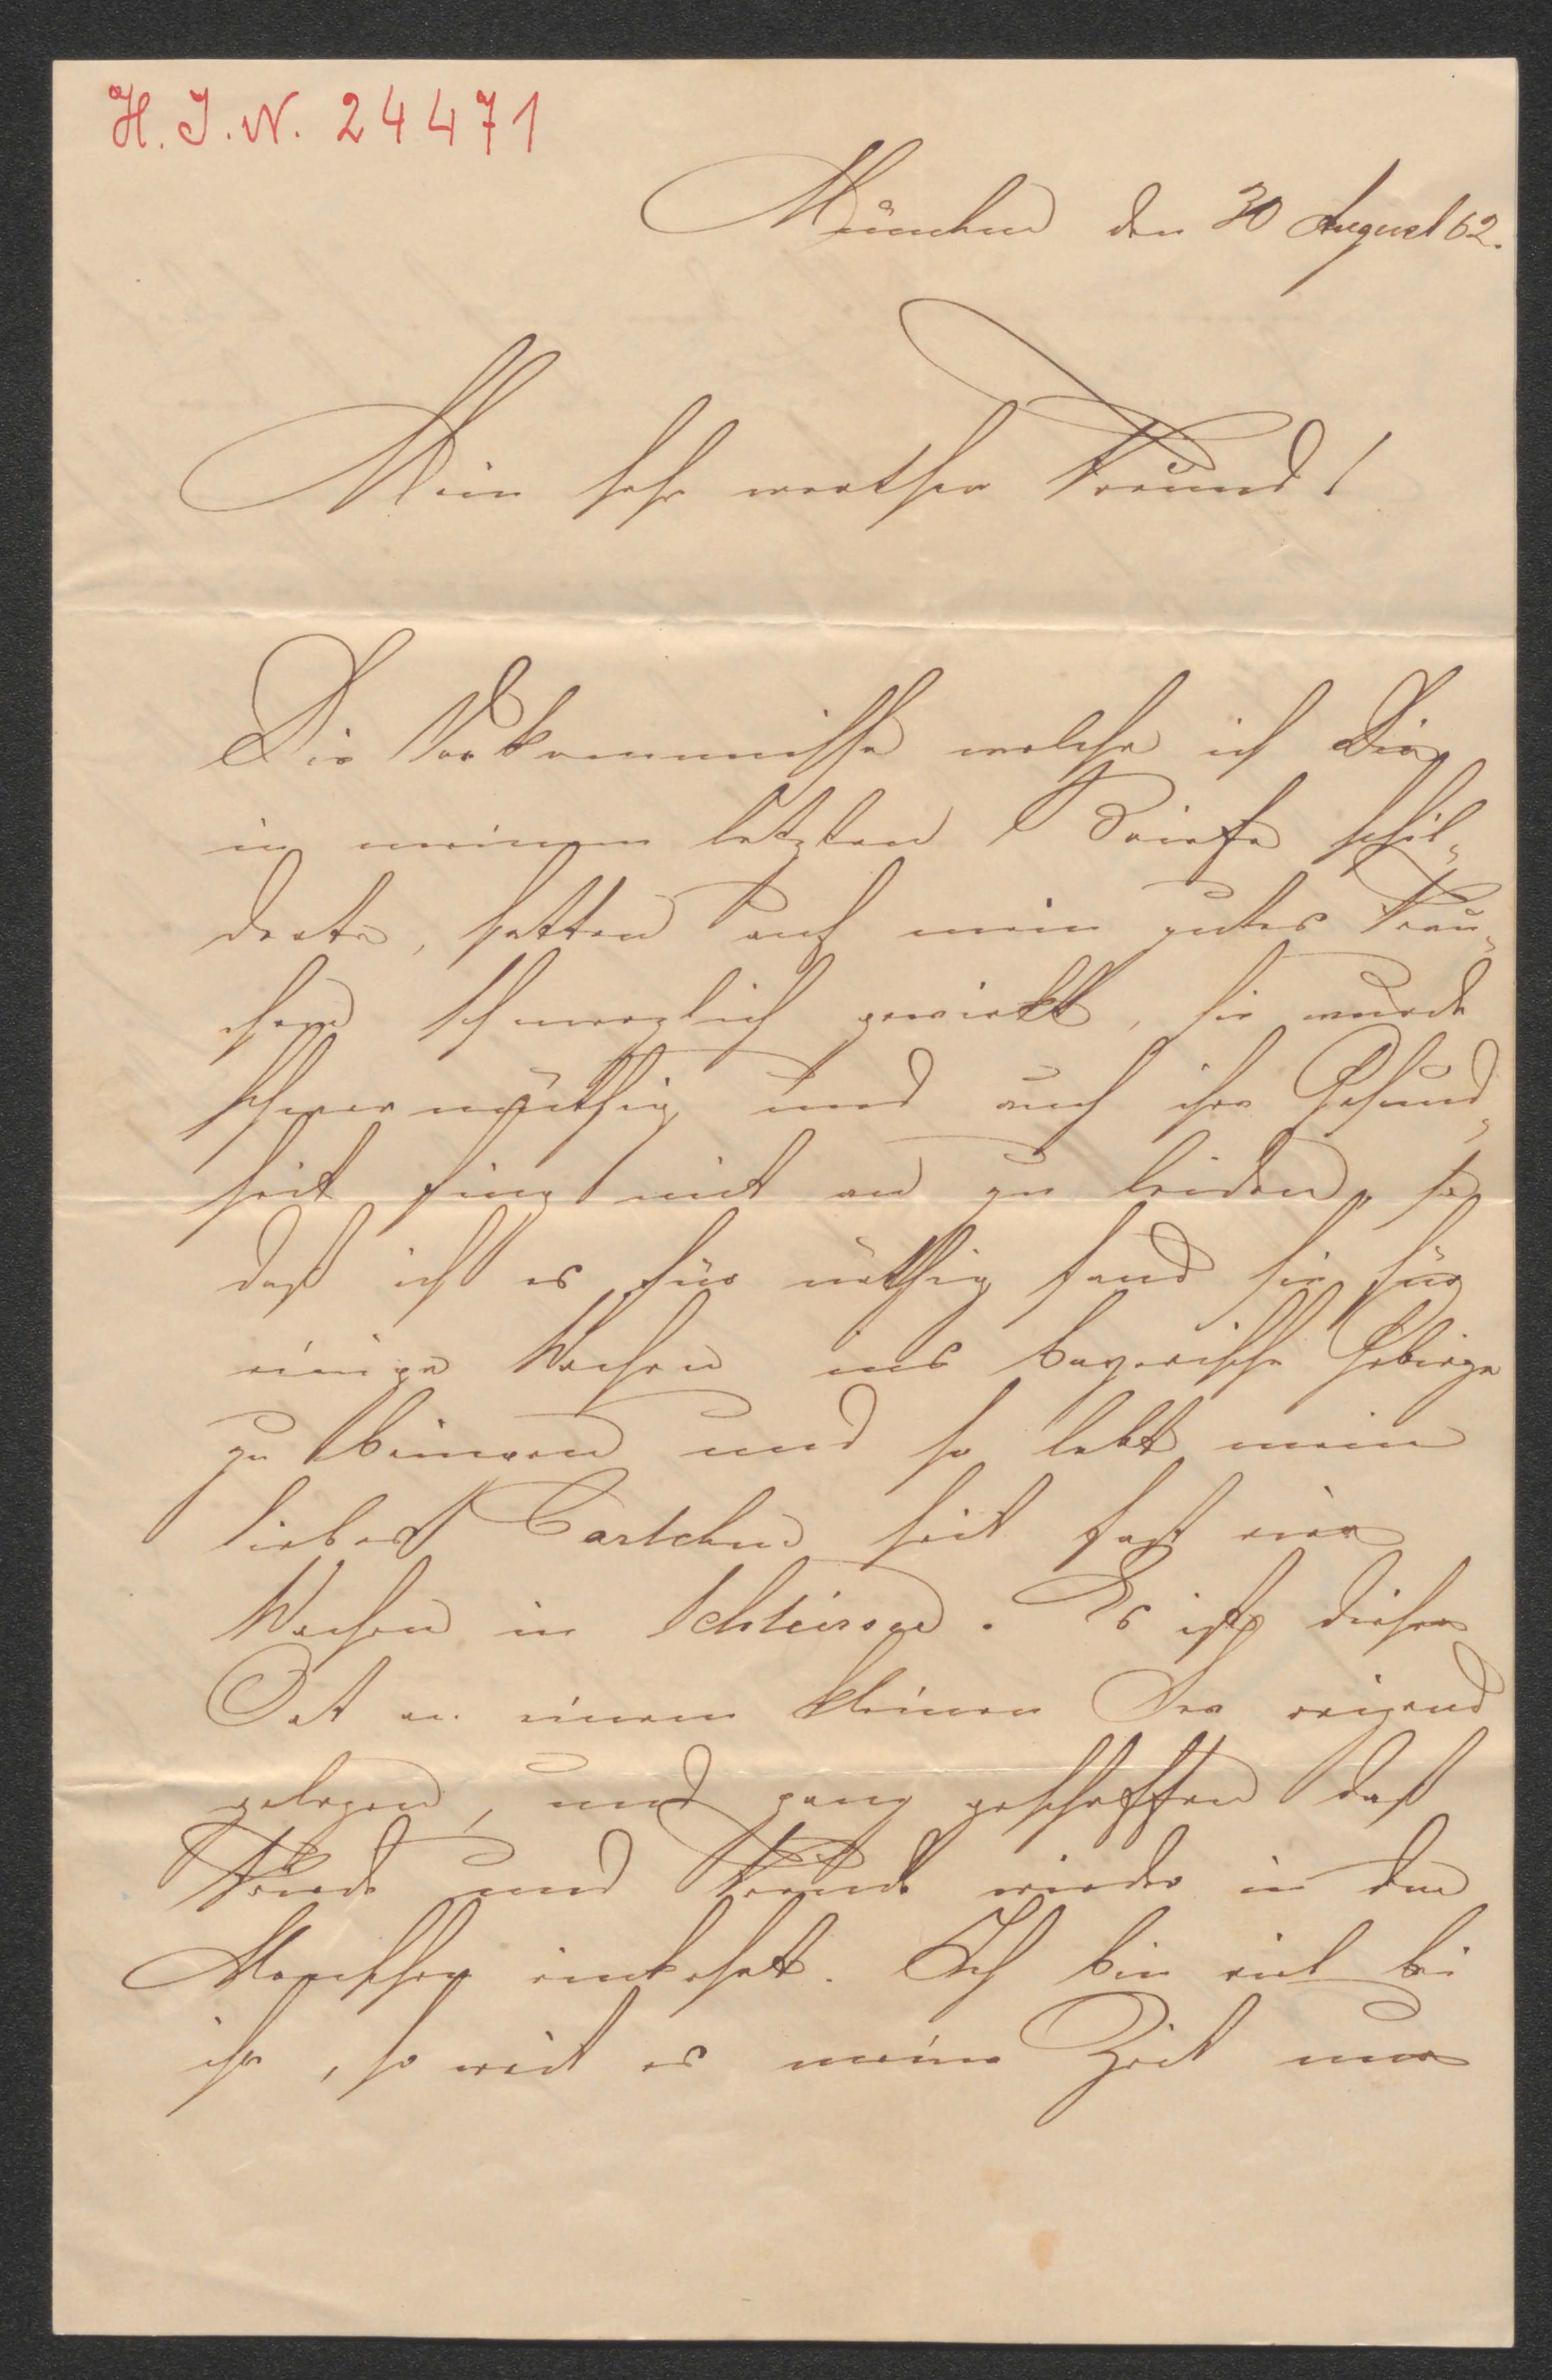 H. I. N. 24471
München den 30 August 62.
Mein sehr werther Freund!
Die Vorkommnisse welche ich Dir
in meinem letzten Briefe schil-
derte, hatten auf mein gutes Frau-
chen schmerzlich gewirkt, sie wurde
schwermüthig und auch ihre Gesund-
heit fing mit an zu leiden, so
daß ich es für nöthig fand sie für
einige Wochen ins bayerische Gebirge
zu bringen und so lebt mein
liebes Carlchen seit fast vier
Wochen in Schliersee. Es ist dieser
Ort an einem kleinen See reizend
gelegen, und ganz geschaffen daß
Friede und Freude wieder in den
Menschen einkehrt. Ich bin viel bei
ihr, so weit es meine Zeit nur